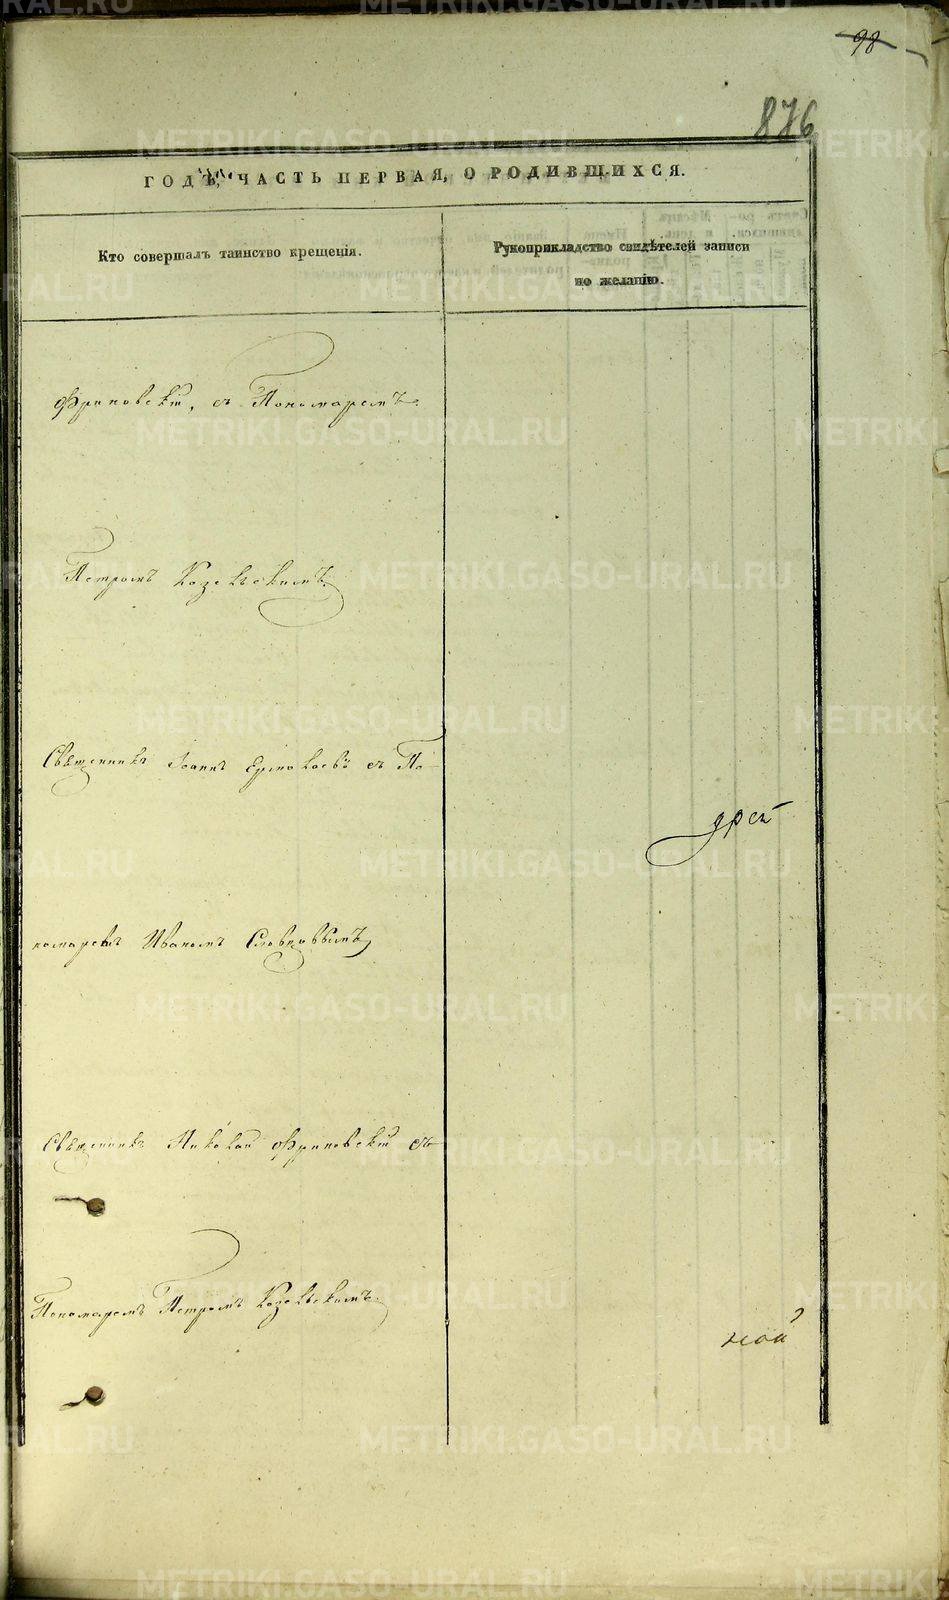 98
876
ГОДЪ, ЧАСТЬ ПЕРВАЯ, О РОДИВШИХСЯ.
Кто совершалъ таинство крещенія.
Рукоприкладство свидѣтелей записи
по желанію.
Фриновскій, съ Пономаремъ
Петромъ Козельскимъ.
Священникъ Іоаннъ Ермолаевъ съ По-
дрей
номаремъ Иваномъ Словцовымъ
Священникъ Николай Фриновскій съ
Пономаремъ Петромъ Козельскимъ.
ной
METRIKI.GASO-URAL.RU